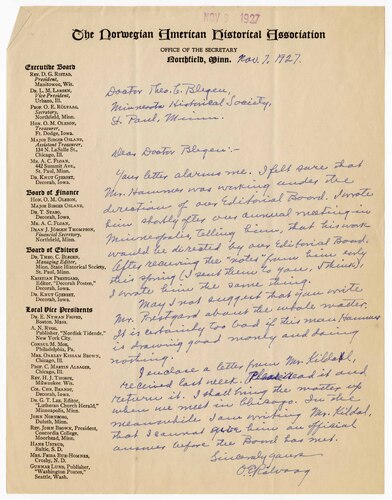 NOV 9 1927
The Norwegian American Historical Association
OFFICE OF THE SECRETARY
Northfield, Minn. Nov. 7, 1927.
Executive Board
REV. D. G. RISTAD,
President,
Manitowoc, Wis.
DR. L. M. LARSEN,
Vice-President,
Urbana, Ill.
PROF. O. E. RÖLVAAG,
Secretary,
Northfield, Minn.
HON. O. M. OLESON,
Treasurer,
Ft. Dodge, Iowa.
MAJOR BIRGER OSLAND,
Assistant Treasurer,
134 N. LaSalle St.,
Chicago, Ill.
MR. A. C. FLOAN,
442 Summit Ave.,
St. Paul, Minn.
DR. KNUT GJERSET,
Decorah, Iowa.
Board of Finance
HON. O. M. OLESON,
MAJOR BIRGER OSLAND,
DR. T. STABO,
Decorah, Iowa.
MR. A. C. FLOAN,
DEAN J. JÖRGEN THOMPSON,
Financial Secretary,
Northfield, Minn.
Board of Editors
DR. THEO. C. BLEGEN,
Managing Editor,
Minn. State Historical Society,
St. Paul, Minn.
KRISTIAN PRESTGARD,
Editor, "Decorah Posten,"
Decorah, Iowa.
DR. KNUT GJERSET,
Decorah, Iowa.
Local Vice Presidents
DR. E. NYMAN FIGVED,
Boston, Mass.
A. N. RYGG,
Publisher, "Nordisk Tidende,"
New York City.
CONSUL M. MOE,
Philadelphia, Pa.
MRS. OAKLEY KISSAM BROWN,
Chicago, Ill.
PROF. C. MARIUS ALSAGER,
Chicago, Ill.
REV. H. J. THORPE,
Milwaukee, Wis.
COL. CHR. BRANDT,
Decorah, Iowa.
DR. G. T. LEE, Editor,
"Lutheran Church Herald,"
Minneapolis, Minn.
JOHN NORDWOG,
Duluth, Minn.
REV. JOHN BROWN, President,
Concordia College,
Moorhead, Minn.
HANS USTRUD,
Baltic, S. D.
MRS. FRIDA BUE-HOMNES,
Crosby, N. D.
GUNNAR LUND, Publisher,
"Washington Posten,"
Seattle, Wash.
Doctor Theo. C. Blegen,
Minnesota Historical Society,
St. Paul, Minn.
Dear Doctor Blegen:-
Your letter alarms me. I felt sure that
Mr. Hammer was working under the
direction of our Editorial Board. I wrote
him shortly after our annual meeting in
Minneapolis, telling him, that his work
would be directed by our Editorial Board.
After receiving the "notes" from him early
this spring (I sent them to you, I think),
I wrote him the same thing.
May I not suggest that you write
Mr. Prestgard about the whole matter.
It is certainly too bad if this man Hammer
is drawing good money and doing
nothing.
I inclose a letter from Mr. Kildal,
received last week. Please read it and
return it. I shall bring the matter up
when we meet in Chicago. In the
meanwhile I am writing Mr. Kildal,
that I cannot give him an official
answer before the Board has met.
Sincerely yours
O. E. Rölvaag